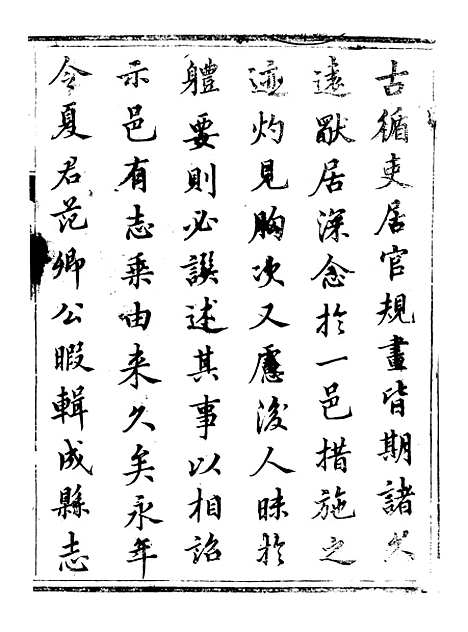 古循吏居官規畫皆期諸久
遠猷居深念於一邑措施之
迹灼見胸次又慮後人昧於
軆要則必譔述其事以相詔
示邑有志乗由来久矣永年
令夏君范卿公暇輯成縣志